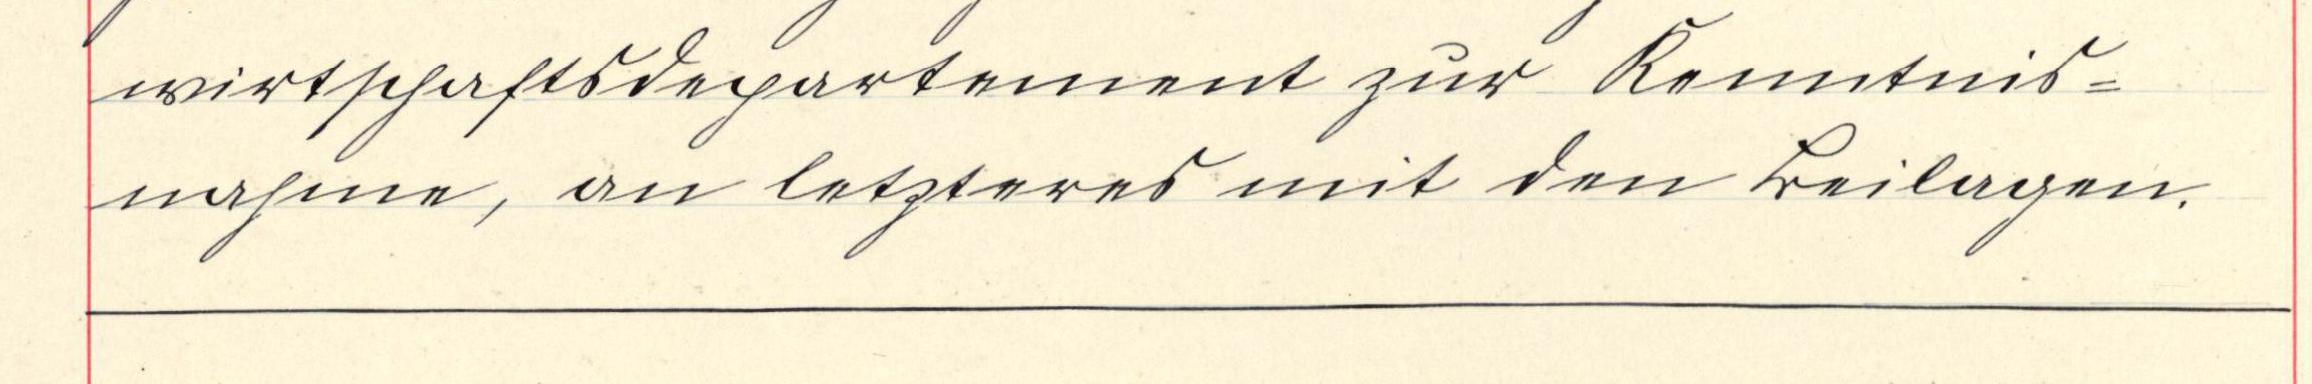 wirtschaftsdepartement zur Kenntnis=
nahme, an letzteres mit den Beilagen.